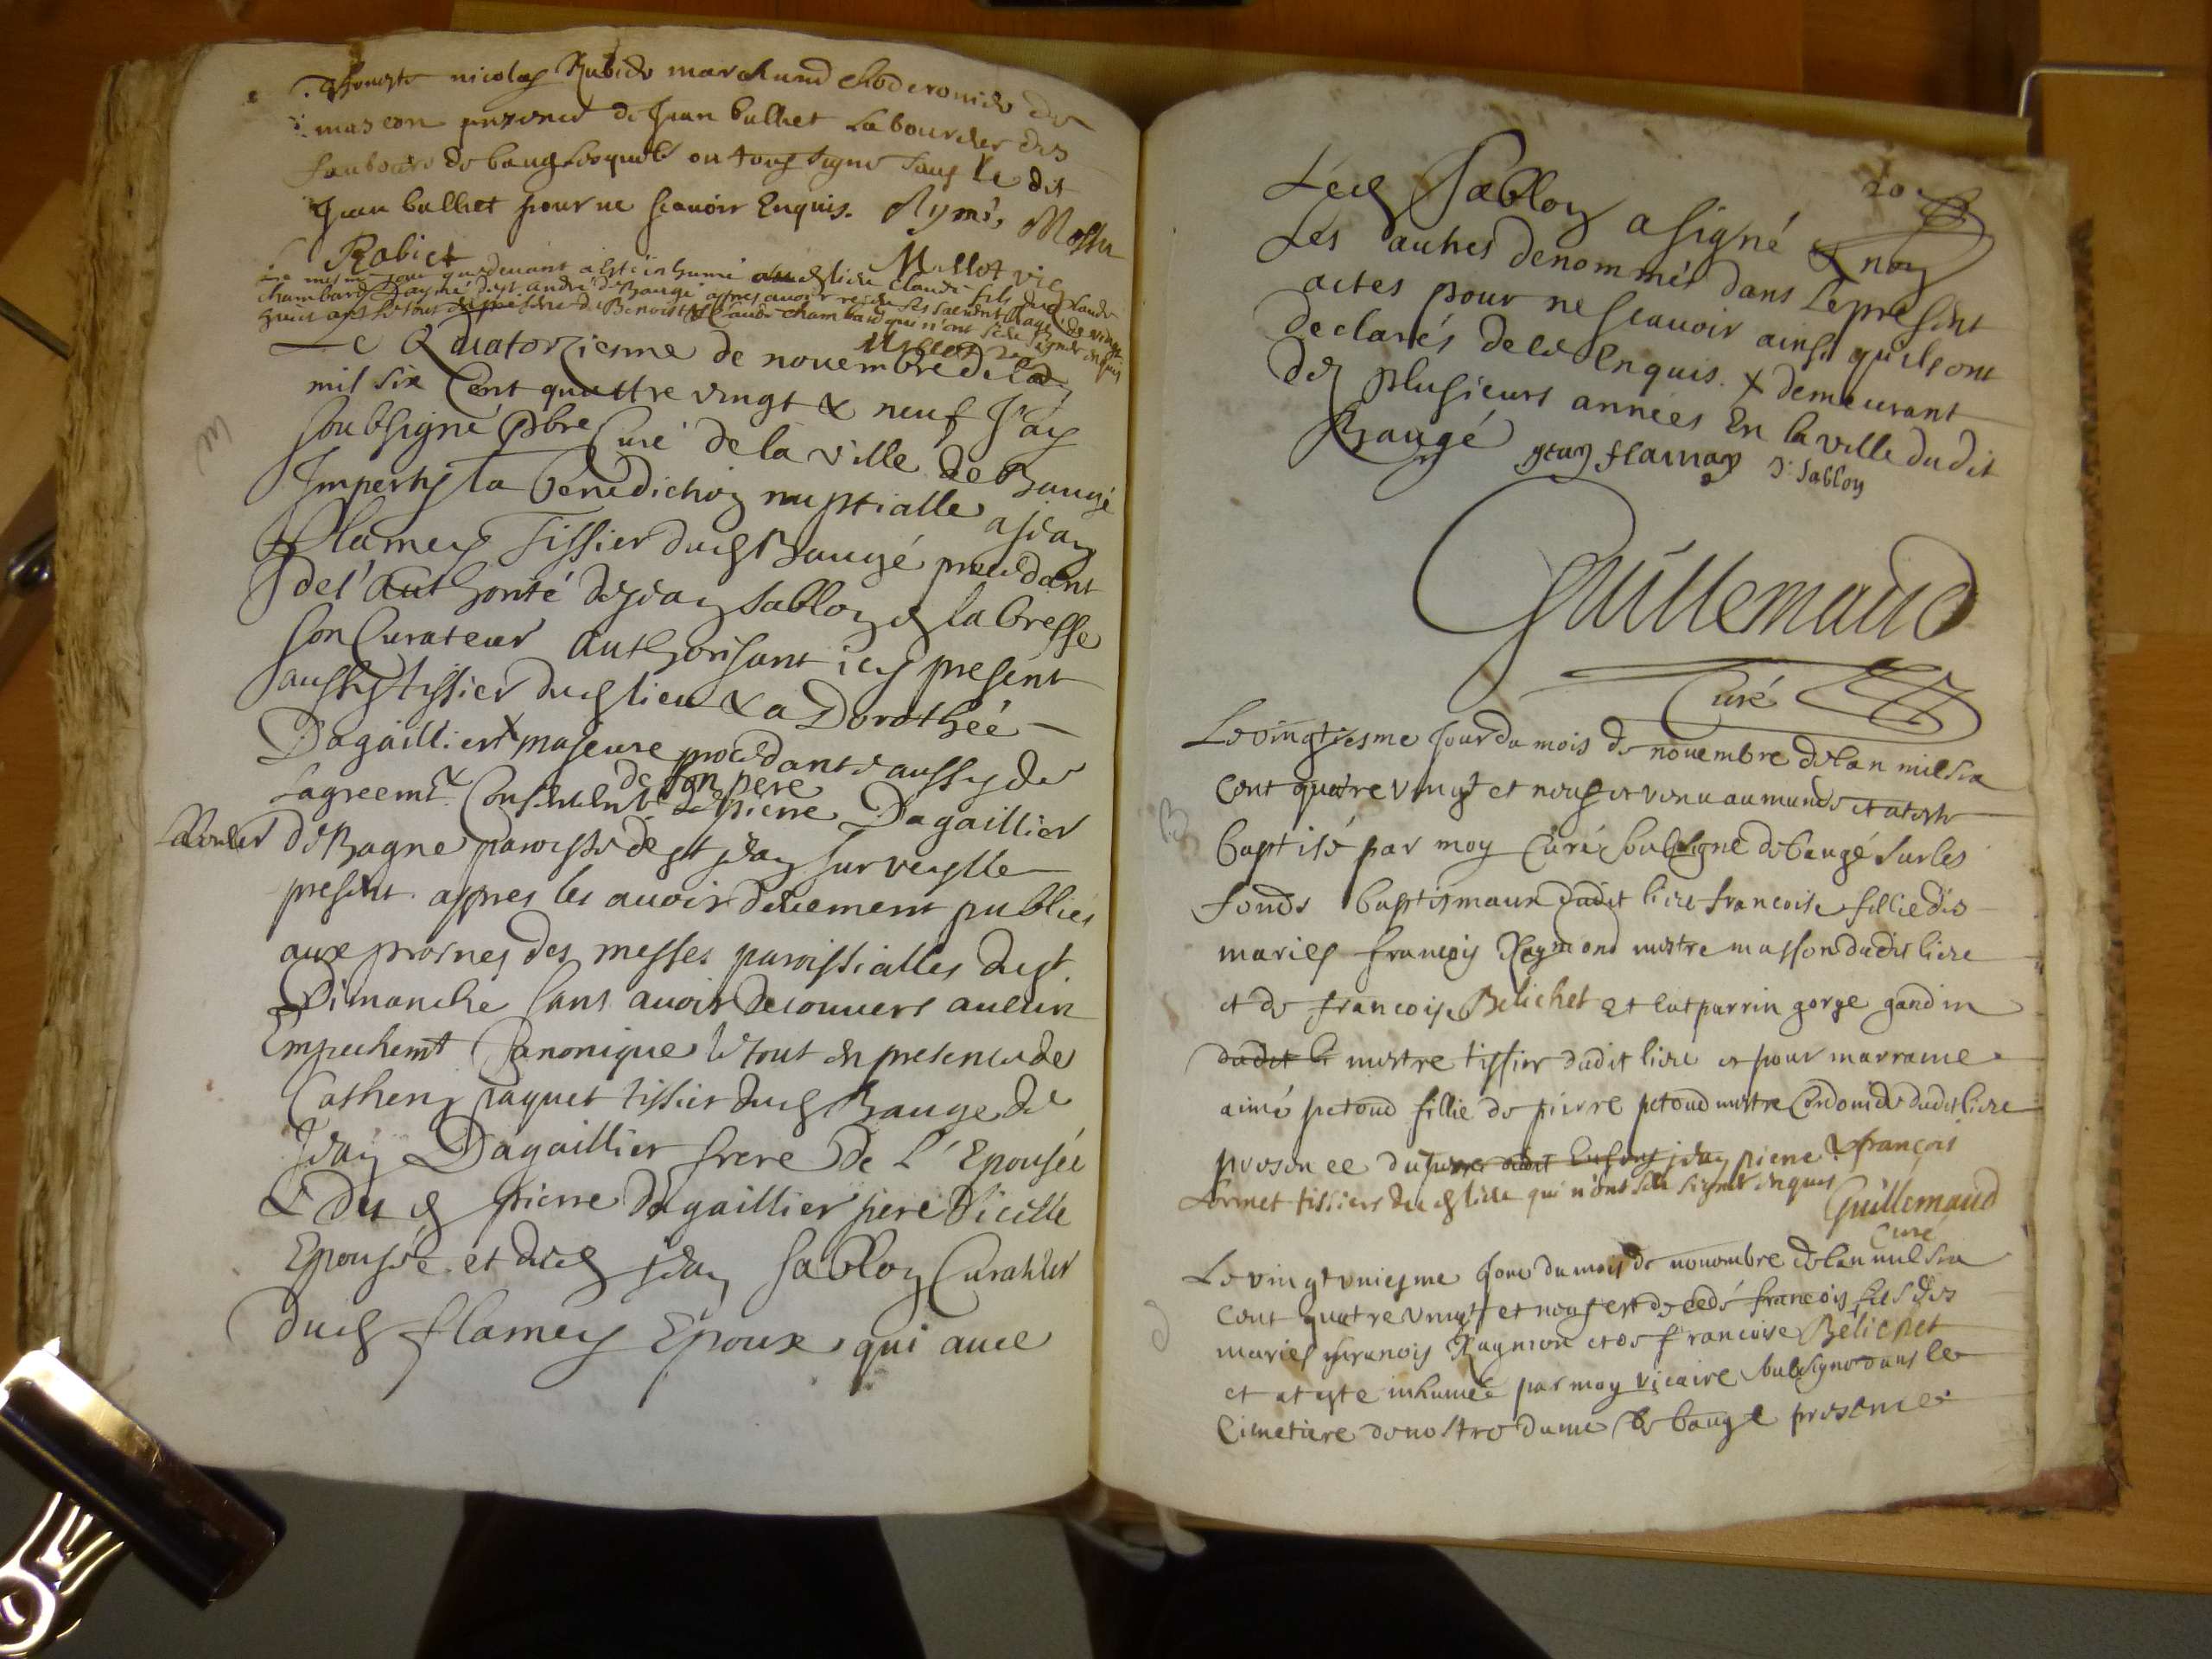 honeste nicolas Rubide marchand de
mascon presence de Jean bulliet Laboureur des
faubours de baugé lesquels on tous signe sauf le dit
Jean bulliet pour ne scavoir Enquis.
Robiet Millot vic
Le mesme jour que devant a esté inhumé Claude fils du Claude
Chambard de st andré de Baugé apres avoir receu ses sacrements agé de vingt
huict ans Le tout de Benoist Claude Chambard qui n'ont sceu signer enquis
Millot
Le Quatorziesme de novembre de L'an
mil six Cent quattre vingt & neuf J'ay
soubsigné pbre Curé de la ville de Baugé
Imperty la benediction nuptialle a Jean
flamey Tissier dud Baugé procedant
de l'Authorité de Jean Sabloy d la bresse
son Curateur Authorisant icy present
aussy tissier dud lieu & a Dorothée
Dagaillier x majeure procedante aussy de
Lagreemt & Consentement de pierre Dagaillier
de son pere
Laboureur de Bagne paroisse de st jean sur veylle
present. appres les avoir deuement publiés
aux prosnes des messes paroissialles du st.
Dimanche sans avoir decouvert aulcun
Empechemt Canonique le tout en presence de
Cathein paquet tissier dud Baugé de
Jean Dagaillier frere de L'Epousée
& dud pierre Dagaillier pere d'icelle
Epousée et dud jean Sabloy Curateur
dud flamey Epoux qui avec
20
Led Sabloy a signé & non
Les autres denommés dans Le present
actes pour ne scavoir ainsi qu'ils ont
declarés de ce Enquis. x demeurant
dez plusieurs années En la ville dudit
Baugé jean flamay J. Sabloy
Guillemaud
Curé
Le vingtiesme jour du mois de novembre de lan mil six
Cent quatre vingt et neuf est venu au munde et at este
baptisé par moy Curé soubsigné de baugé sur les
fonds baptismaux dudit lieu francoise fillie des
mariés francois Raymond mestre masson dudit lieu
et de francoise Belichet et eut parrin gorge gandin
dudit li mestre tissier dudit lieu et pour marraine
aimé petoud fillie de pierre petoud mestre Cordonier dudit lieu
presence du jean pierre & francois
Cormet tissiers dud lieu qui n'ont sceu signer enquis
Guillemaud
Curé
Le vingt uniesme jour du mois de novembre de lan mil six
Cent quatre vingt et neuf est decedé francois fils des
mariés francois Raymon et de francoise Belichet
et at este inhumée par moy vicaire soubsigné dans le
Cimetiere de nostre dame de baugé presence